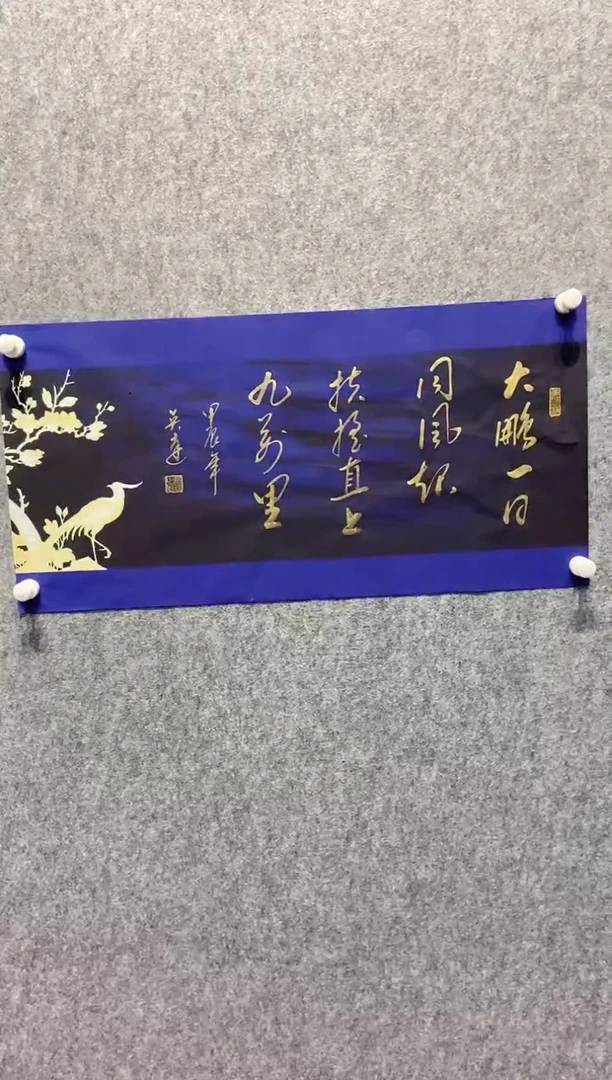 大鹏一日
同风起
扶摇直上
九万里
甲辰年